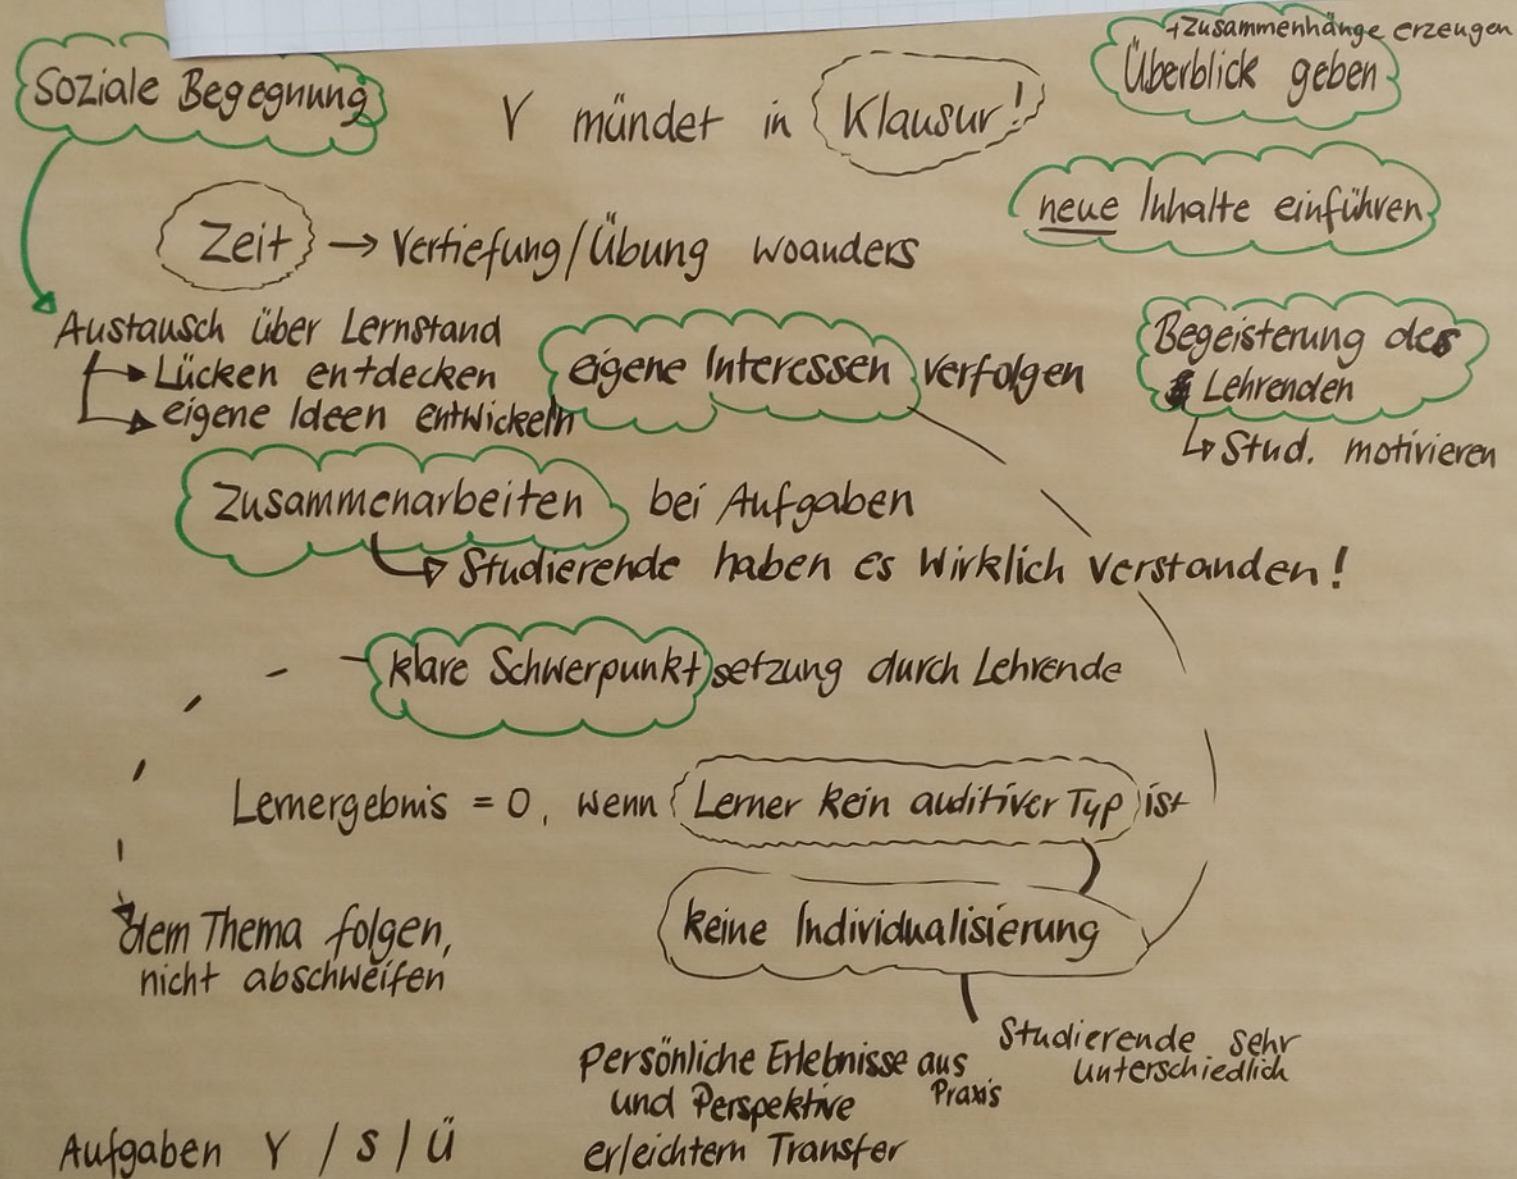 +Zusammenhänge erzeugen
Soziale Begegnung
Überblick geben
V mündet in Klausur!
neue Inhalte einführen
Zeit → Vertiefung/Übung woanders
Austausch über Lernstand
Lücken entdecken
eigene Ideen entwickeln
eigene Interessen verfolgen
Begeisterung des
Lehrenden
↳ Stud. motivieren
Zusammenarbeiten bei Aufgaben
Studierende haben es wirklich verstanden!
klare Schwerpunktsetzung durch Lehrende
Lernergebnis = 0, wenn Lerner kein auditiver Typ ist
keine Individualisierung
dem Thema folgen,
nicht abschweifen
Studierende sehr
unterschiedlich
Persönliche Erlebnisse aus
Praxis
und Perspektive
erleichtern Transfer
Aufgaben V / S / Ü